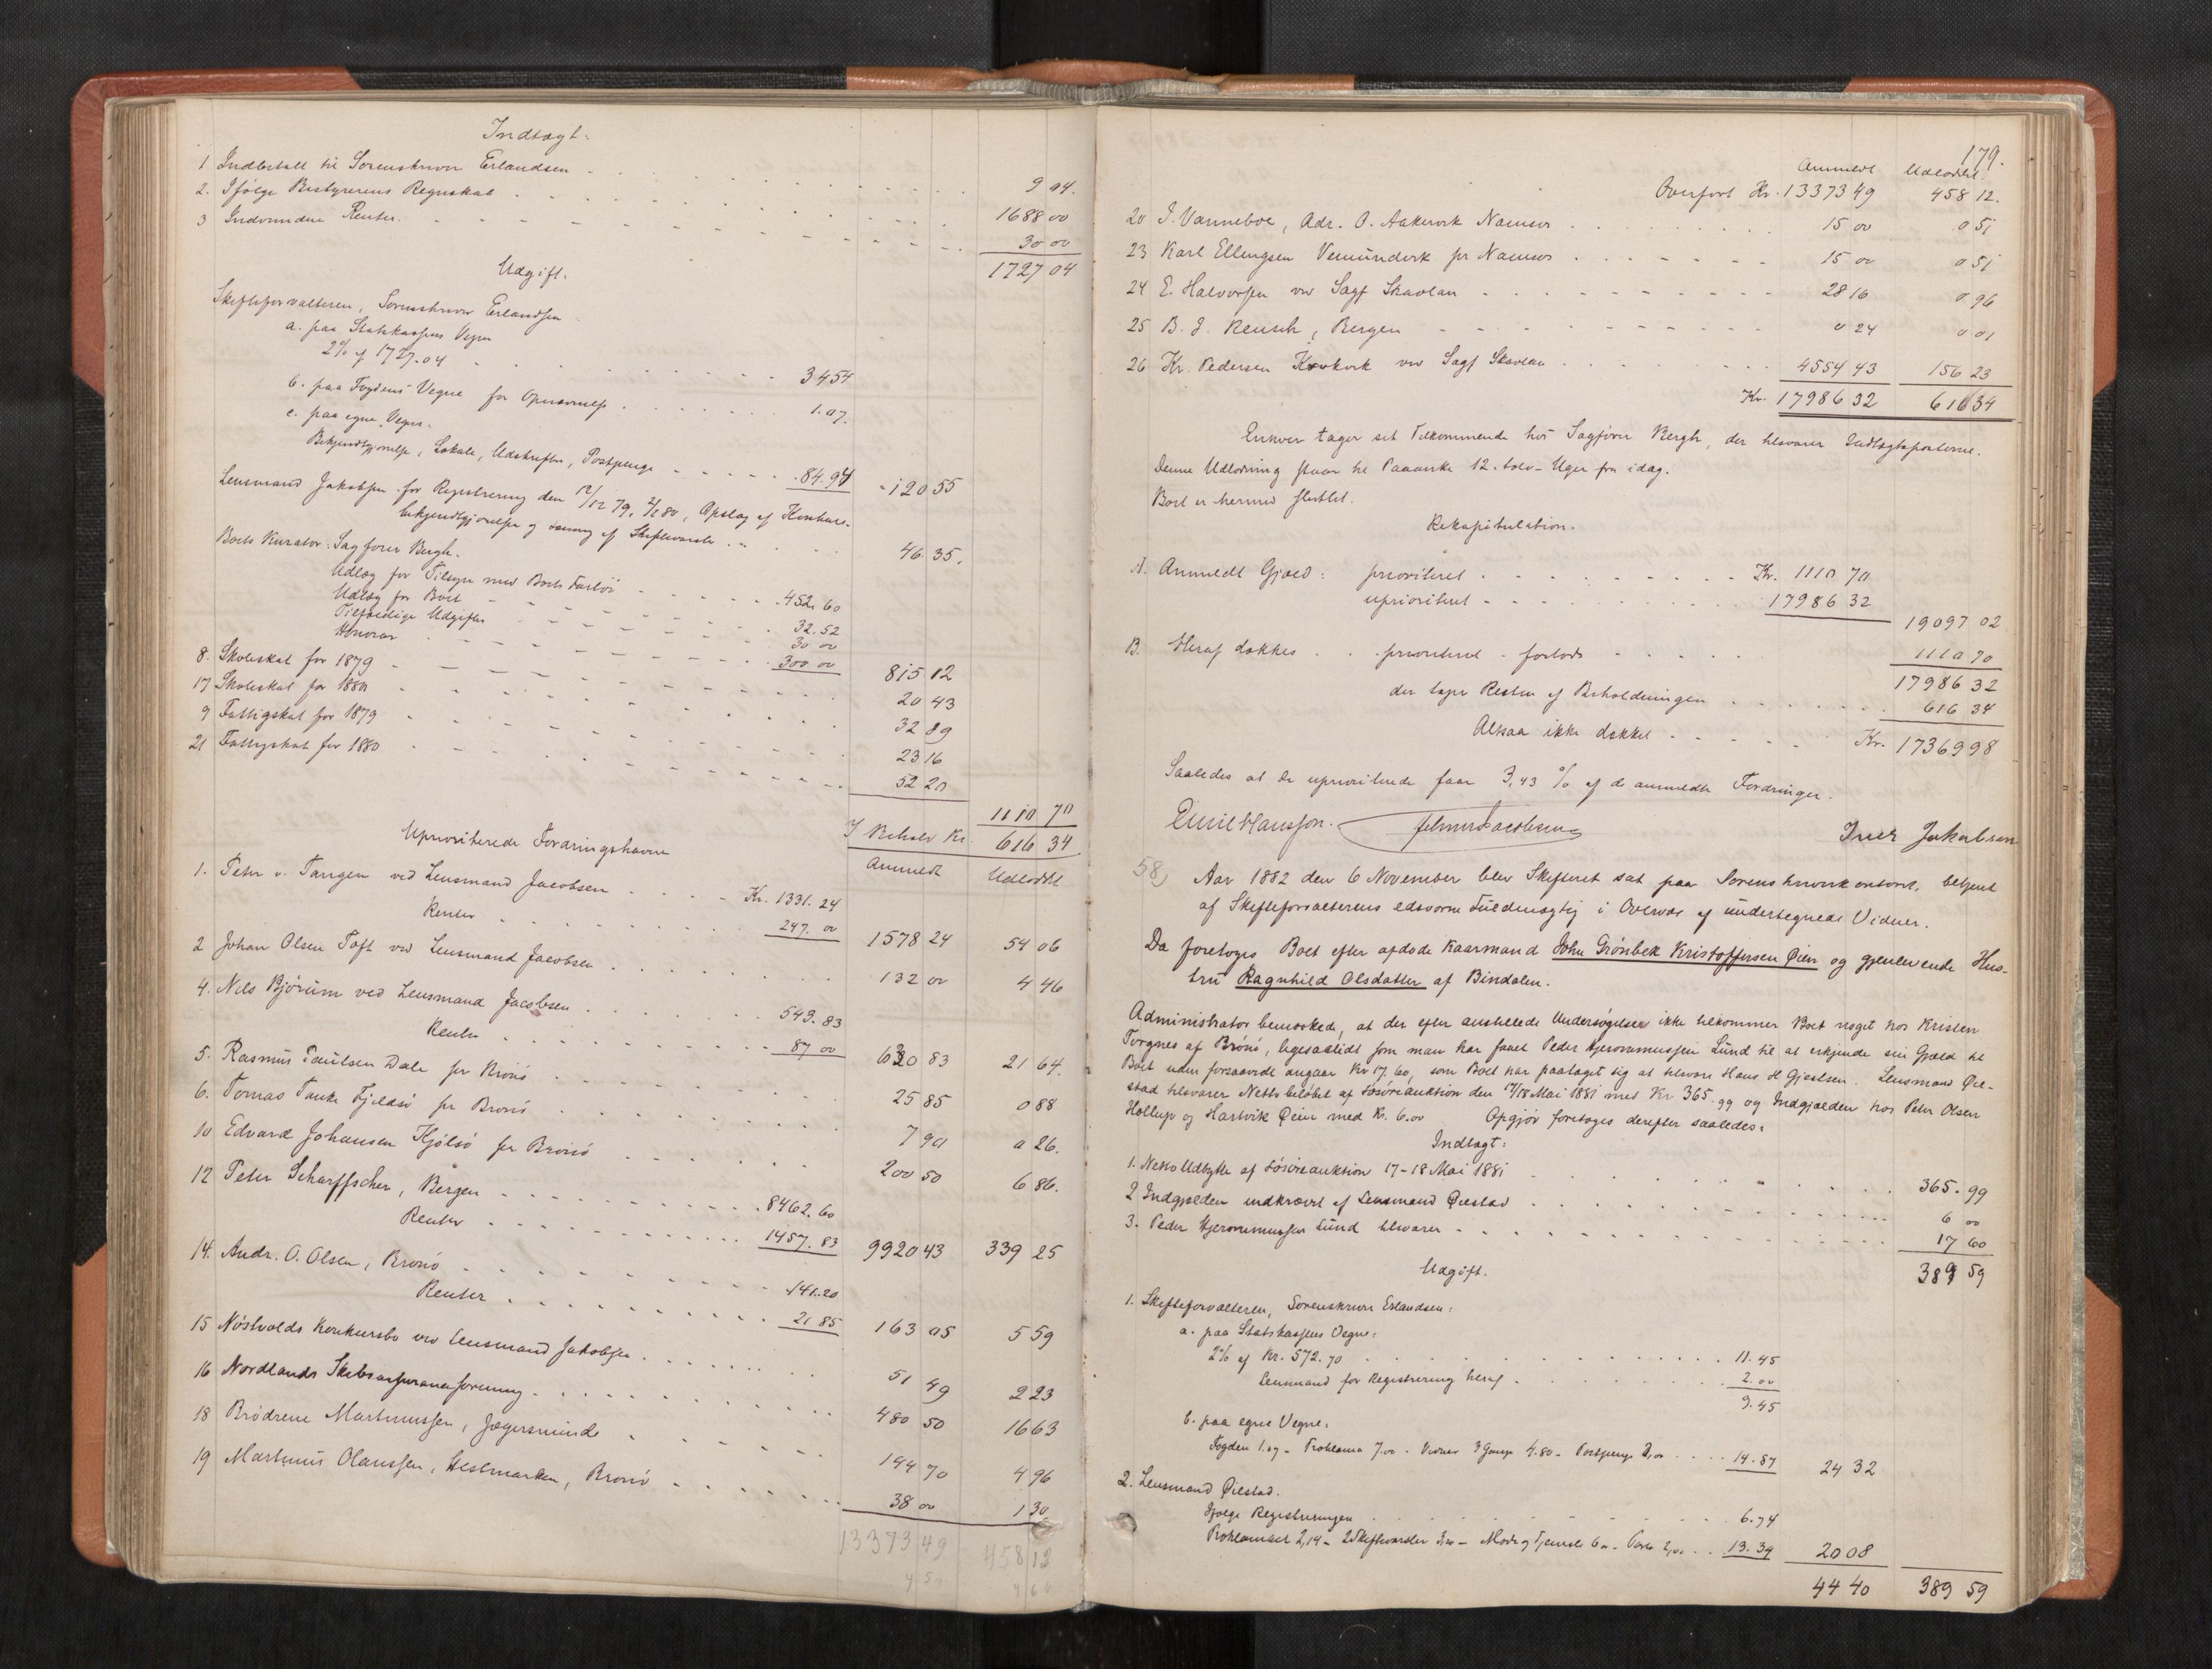 Indtægt:
1 Indbetalt til Sorenskriver Erlandsen 9 04.
2. Ifølge Bestyrerens Regnskab 1688 00
3 Indvundne Renter. 30 00
1727 04
Udgift.
Skifteforvalteren, Sorenskriver Erlandsen
a. paa Statskassens Vegne
2% af 1727.04 34 54
b. paa Fogdens Vegne for Opnævnelse 1.07.
c. paa egne Vegne.
Bekjendtgjørelse, Lokale, Udskrifter, Postpenge 84.94 120 55
Lensmand Jakobsen for Registrering den 12/12 79, 2/1 80, Opslag af Konkurs-
bekjendtgjørelse og af Skiftevarsler 46 35.
Boets Kurator: Sagfører Bergh.
Udlæg for Tilsyn med Boets Fartøi 452.60
Udlæg for Boet 32.52
Tilfældige Udgifter 30 00
Honorar 300 00 815 12
8. Skoleskat for 1879 20 43
17 Skoleskat for 1880 32 89
9 Fattigskat for 1879 23 16
21 Fattigskat for 1880 52 20
1110 70
I Behold Kr. 616 34
Uprioriterede Fordringshavere Anmeldt Udloddet
1. Peter v. Tangen ved Lensmand Jacobsen Kr. 1331.24
Renter 247.00 1578 24 54 06
2 Johan Olsen Toft ved Lensmand Jacobsen 132 00 4 46
4. Nils Bjørum ved Lensmand Jacobsen 543.83
Renter 87 00 630 83 21 64.
5. Rasmus Paulsen Dale pr Brønø 25 85 0 88
6. Tomas Tanke Fjeldsø pr Brønø 7 90 0 26.
10 Edvard Johansen Kjølsø pr Brønø 200 50 6 86.
12 Peter Scharffscher, Bergen 8462.60
Renter 1457.83 9920 43 339 25
14. Andr. O. Olsen, Brønø 141.20
Renter 21 85 163 05 5 59
15 Nøstvolds Konkursbo ved Lensmand Jakobsen 51 49 2 23
16 Nordlands Skibsassuranceforening 480 50 16 63
18 Brødrene Martinussen, Jægersminde 144 70 4 96
19 Martinus Olaussen, Vestmarken, Brønø 38 00 1 30
13373 49 458 12
179.
Anmeldt Udloddet.
Overført Kr. 13373 49 458 12.
20 J. Vanneboe, Adr. O. Aakervik Namsos 15 00 0 51
23 Karl Ellingsen Vemundvik pr Namsos 15 00 0 51
24 E. Halvorsen ved Sagf Skavlan 28 16 0 96
25 B. J. Reusch, Bergen 0 24 0 01
26 Kr. Pedersen ved Sagf Skavlan 4554 43 156 23
Kr. 17986 32 616 34
Enhver tager sit Tilkommende hos Sagfører Bergh, der tilsvarer Indtægtsposterne.
Denne Udlodning staar til Paaanke 12. tolv - Uger fra idag.
Boet er hermed sluttet.
Rekapitulation.
A. Anmeldt Gjæld: prioriteret Kr. 1110 70
uprioriteret 17986 32
19097 02
B. Heraf dækkes prioriteret - forlods 1110 70
17986 32
der tages Resten af Beholdningen 616 34
Altsaa ikke dækket Kr. 17369 98
Saaledes at de uprioriterede faar 3,43 % af de anmeldte Fordringer.
Emil Hansson. Iver Jakobsen
58) Aar 1882 den 6 November blev Skifteret sat paa Sorenskriverkontoret, betjent
af Skifteforvalterens edsvorne Fuldmægtig i Overvær af undertegnede Vidner.
Da foretoges Boet efter afdøde Kaarmand John Grønbek Kristoffersen Øien og gjenlevende Hus-
tru Ragnhild Olsdatter af Bindalen.
Administrator bemærkede, at der efter anstillede Undersøgelser ikke tilkommer Boet noget hos Kristen
Torgnes af Brønø, ligesaalidt som man har faaet Peder Hjeronimussen Lund til at erkjende sin Gjæld til
Boet uden forsaavidt angaar Kr 17,60, som Boet har paataget sig at tilsvare Hans H Gjestsen. Lensmand Øie-
stad tilsvarer Nettobeløbet af Løsøreauktion den 17/18 Mai 1881 med Kr 365.99 og Indgjælden hos Peter Olsen
Hollup og Hartvik Øien med Kr. 6.00 Opgjør foretoges derefter saaledes:
Indtægt:
1. Netto Udbytte af Løsøreauktion 17-18 Mai 1881 365.99
2 Indgjælden indkrævet af Lensmand Øiestad 6 00
3. Peder Hjeronimussen Lund tilsvarer 17 60
389 59
Udgift.
1. Skifteforvalteren, Sorenskriver Erlandsen:
a. paa Statskassens Vegne:
2% af Kr. 572.70 11.45
Lensmand for Registrering heraf 2.00
9.45
b. paa egne Vegne:
Fogden 1.07 - Proklama 7.00 - Vidner 3 Gange 4.80 - Postpenge 2,00 14.87 24 32
2. Lensmand Øiestad.
Ifølge Registreringen 6.74
Proklamaet 2,14 - 2 Skiftevarsler - Møde og Tjeneste 13.34 20 08
44 40 389 59